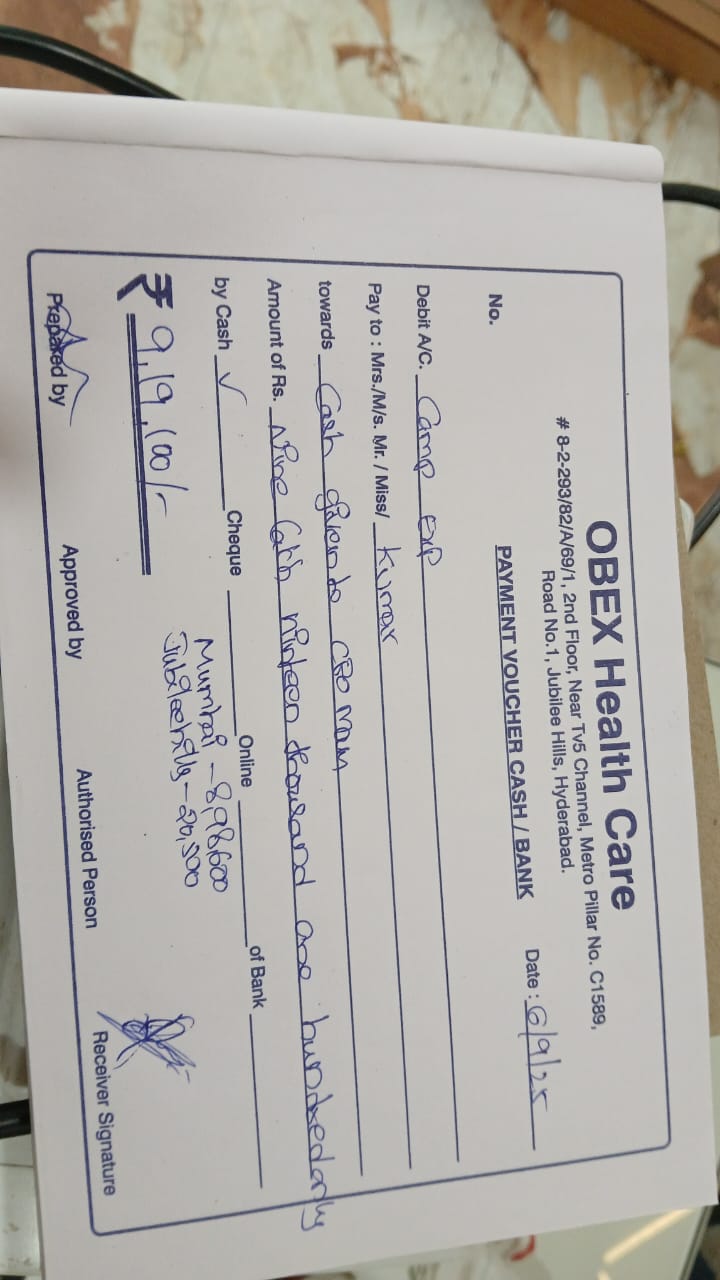 OBEX Health Care
# 8-2-293/82/A/69/1, 2nd Floor, Near Tv5 Channel, Metro Pillar No. C1589,
Road No.1, Jubilee Hills, Hyderabad.
PAYMENT VOUCHER CASH / BANK
No. Date : 6/9/25
Debit A/C. Camp exp
Pay to : Mrs./M/s. Mr. / Miss/ Kumar
towards Cash given to mam
Amount of Rs. Nine lakh ninteen thousand one hundred only
by Cash ✓ Cheque Online of Bank
Mumbai - 8,98,600
Jubileehills - 20,500
₹ 9,19,100/-
Prepared by Approved by Authorised Person Receiver Signature